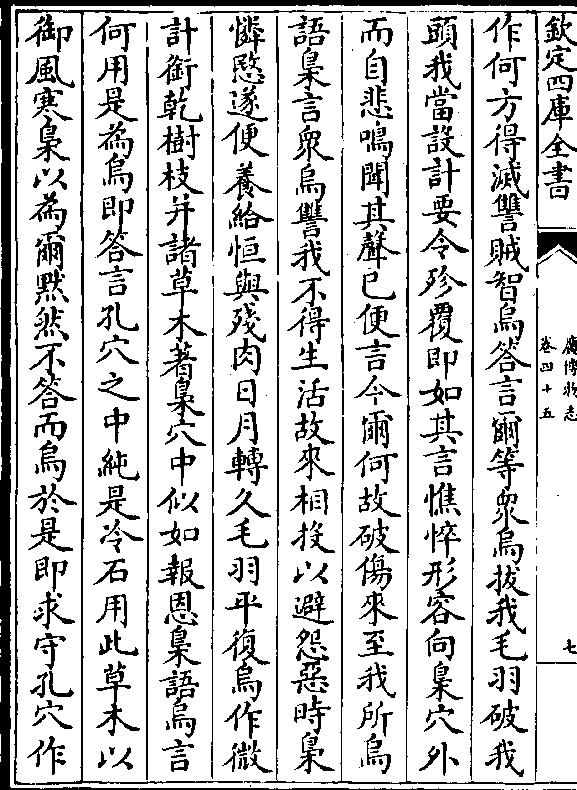 欽定四庫全書
廣博物志
卷四十五
七
作何方得滅讐賊智烏答言爾等衆烏拔我毛羽破我
頭我當設計要令殄覆即如其言憔悴形容向梟穴外
而自悲鳴聞其聲已便言今爾何故破傷來至我所烏
語梟言衆烏讐我不得生活故來相投以避怨惡時梟
憐愍遂便養給恒與殘肉日月轉久毛羽平復烏作微
計銜乾樹枝并諸草木著梟穴中似如報恩梟語烏言
何用是為烏即答言孔穴之中純是冷石用此草木以
御風寒梟以為爾黙然不答而烏於是即求守孔穴作